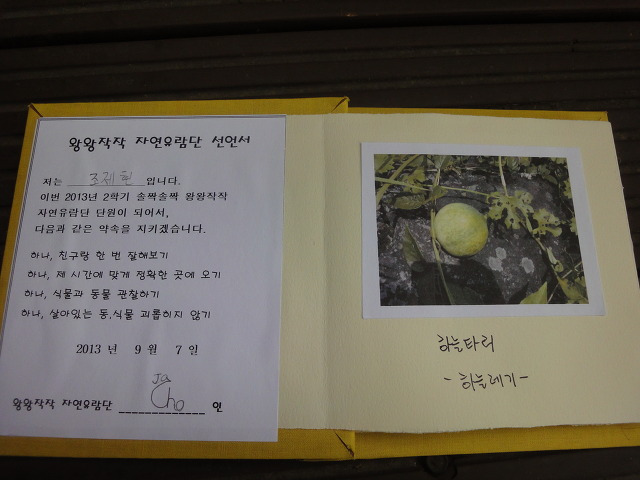 왕왕작작 자연유람단 선언서
저는 조제현 입니다.
이번 2013년 2학기 솔짝솔짝 왕왕작작
자연유람단 단원이 되어서,
다음과 같은 약속을 지키겠습니다.
하나, 친구랑 한 번 잘해보기
하나, 제 시간에 맞게 정확한 곳에 오기
하나, 식물과 동물 관찰하기
하나, 살아있는 동,식물 괴롭히지 않기
2013 년 9 월 7 일
왕왕작작 자연유람단 Ja Cho 인
하늘타리
- 하늘레기 -